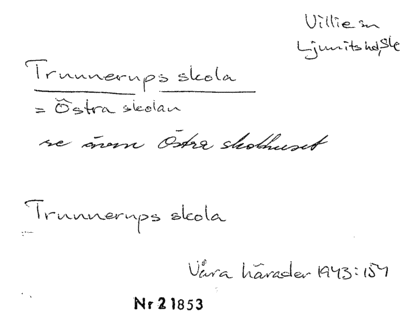 Villie sn
Ljunits hd, Sk
Trunnerups skola
= Östra skolan
se även Östra skolhuset
Trunnerups skola
Våra härader 1943:154
Nr 21853